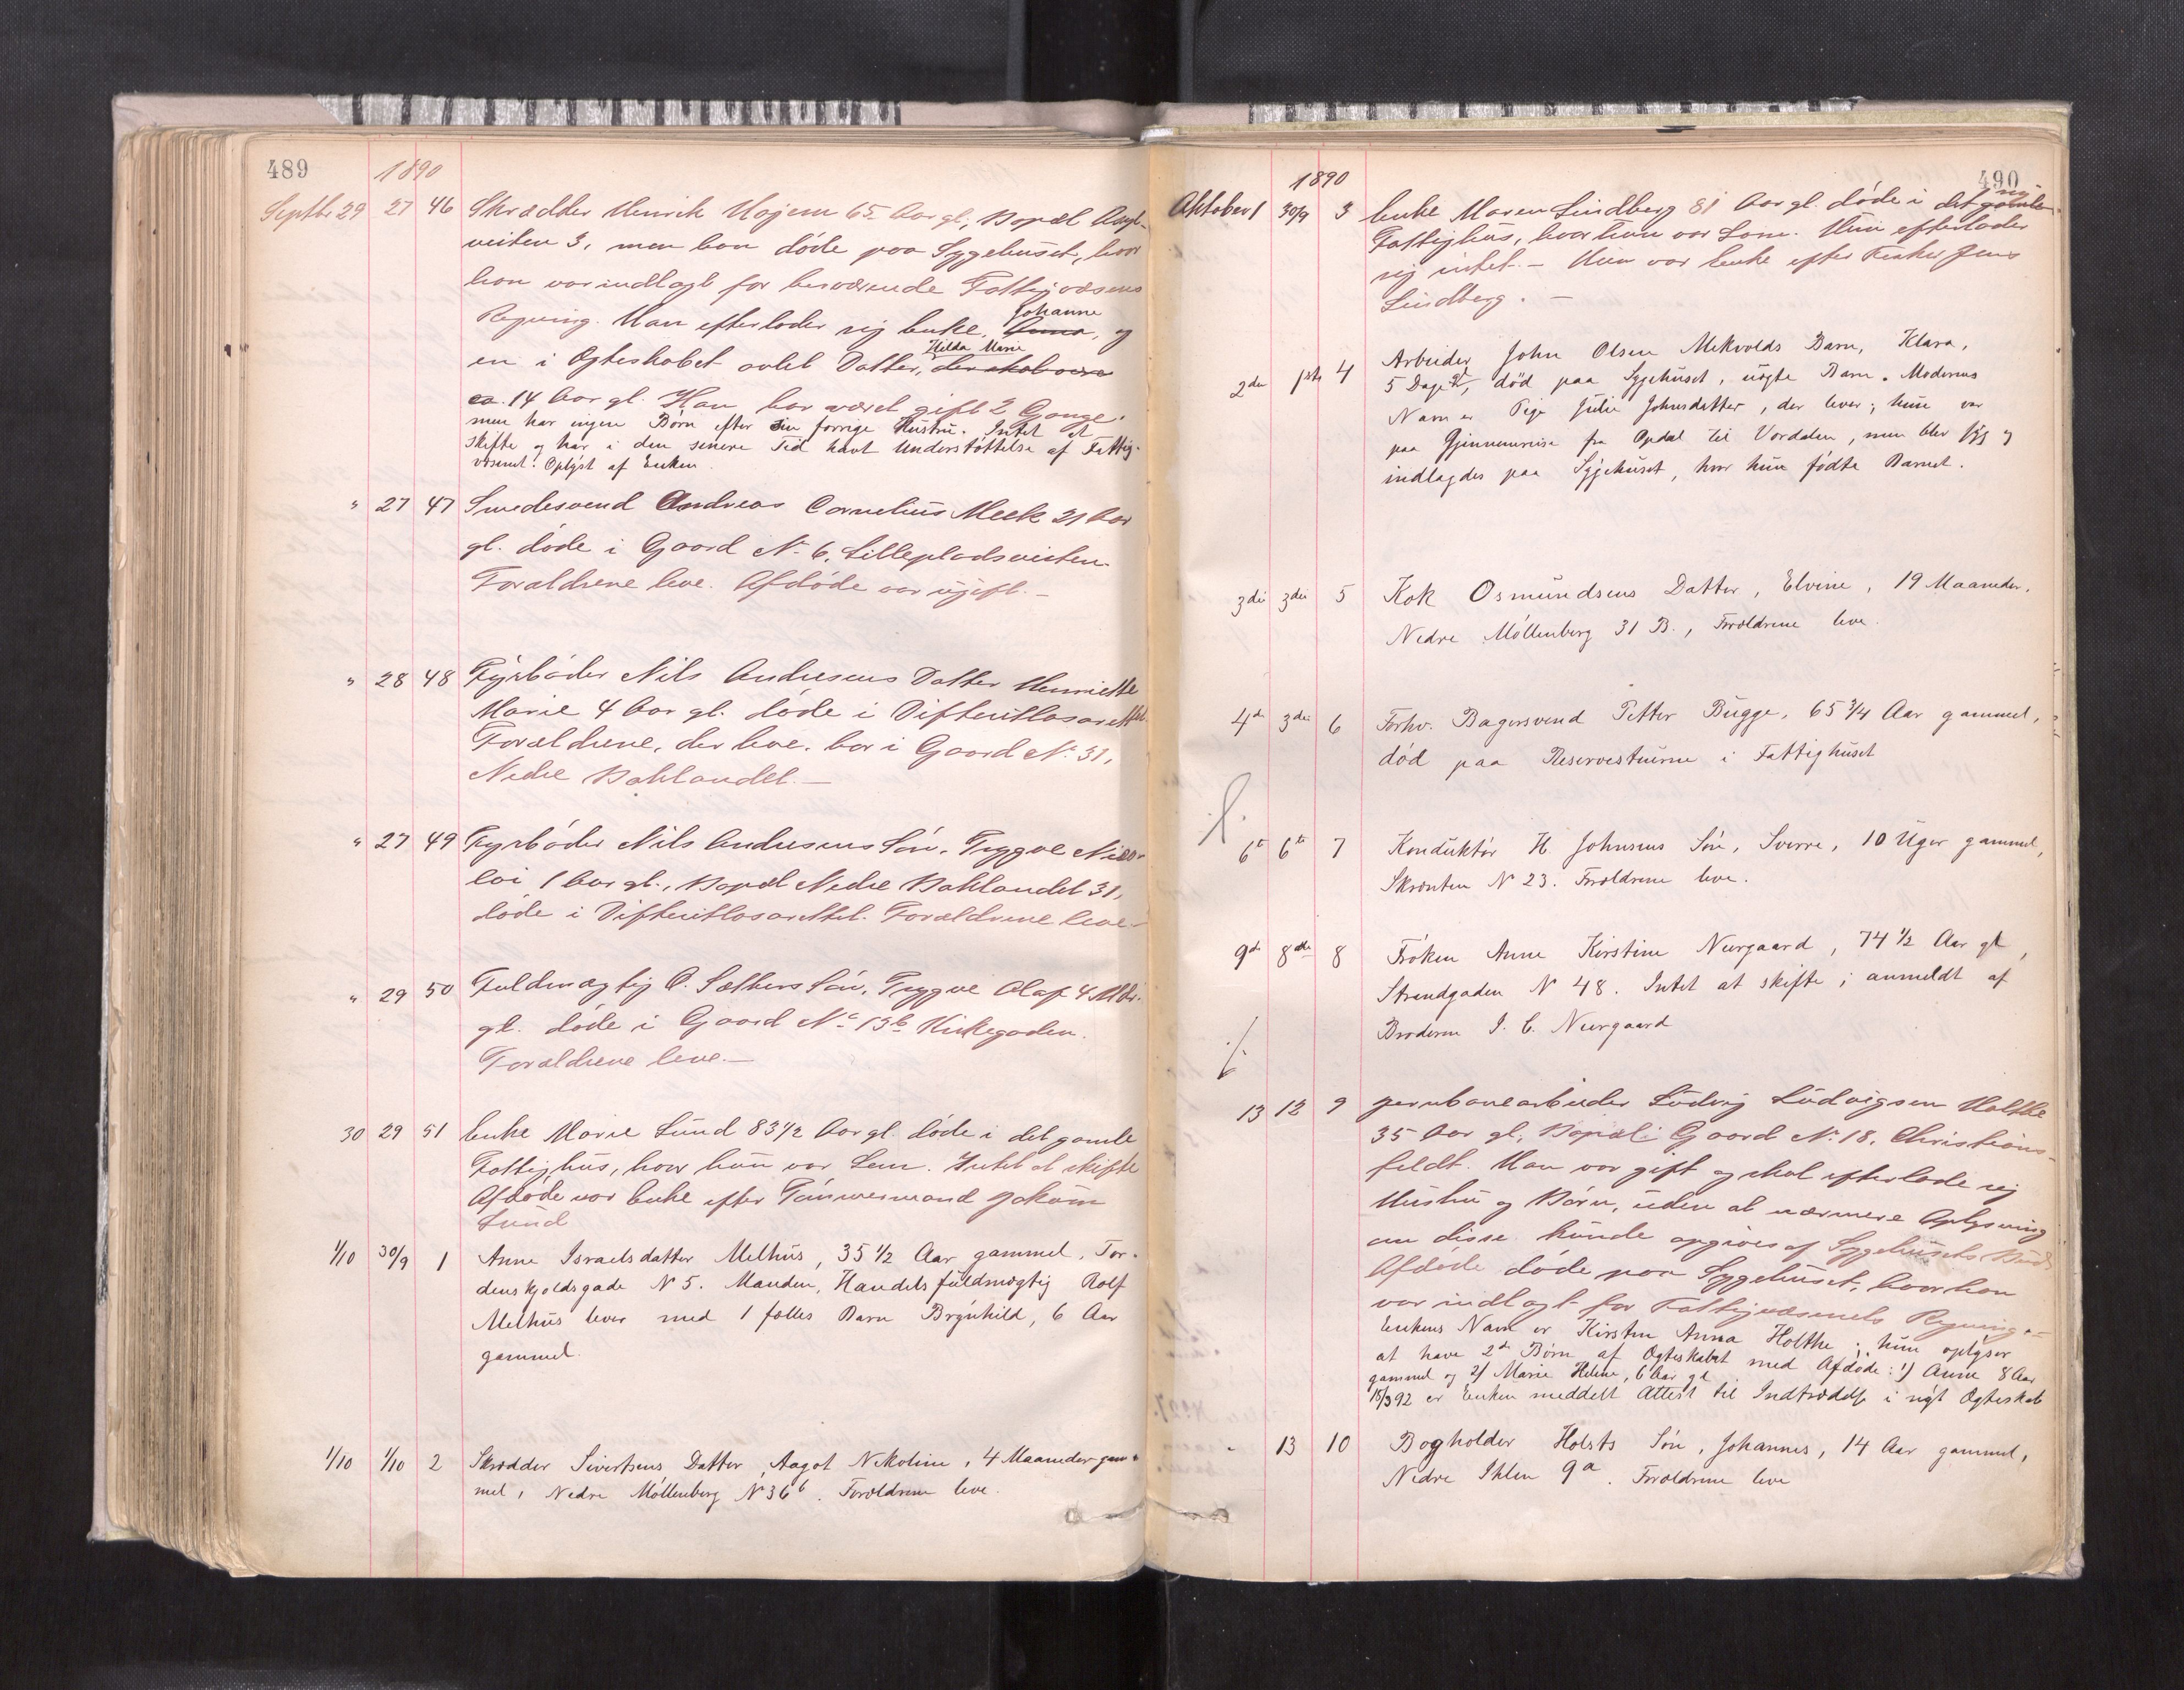 489
1890
Septbr 29 27 46 Skrædder Henrik Hojem 65 Aar gl., Bopæl Angel-
veiten 3, men han døde paa Sygehuset, hvor
han var indlagt for herværende Fattigvæsens
Regning. Han efterlader sig Enke, Anna, Johanne og
en i Ægteskabet avlet Datter, der skal være Hilda Marie
ca. 14 Aar gl. Han har været gift 2 Gange.
men har ingen Børn efter sin forrige Hustru. Intet at
skifte og har i den senere Tid havt Understøttelse af Fattig-
væsenet. Oplyst af Enken.
" 27 47 Smedesvend Andreas Cornelius Meek 21 Aar
gl. døde i Gaard No 6, Lillepladsveiten.
Forældrene leve. Afdøde var ugift. -
" 28 48 Fyrbøder Nils Andresens Datter Henriette
Marie 4 Aar gl. døde i Difteritlasarettet.
Forældrene, der leve, bor i Gaard No 31,
Nedre Baklandet. -
" 27 49 Fyrbøder Nils Andresens Søn, Trygve Nico-
lai 1 Aar gl., Bopæl Nedre Baklandet 31,
døde i Difteritlasarettet. Forældrene leve -
" 29 50 Fuldmægtig O. Sæthers Søn, Trygve Olaf 4 Mdr.
gl. døde i Gaard No 13b Kirkegaden.
Forældrene leve. -
30 29 51 Enke Marie Lund 83 1/2 Aar gl. døde i det gamle
Fattighus, hvor hun var Lem. Intet at skifte
Afdøde var Enke efter Tømmermand Jakom
Lund
1/10 30/9 1 Anne Israelsdatter Melhus, 35 1/2 Aar gammel, Tor-
denskjoldsgade N 5. Manden, Handelsfuldmægtig Rolf
Melhus lever med 1 fælles Barn Brynhild, 6 Aar
gammel.
1/10 1/10 2 Skrædder Sivertsens Datter, Aagot Nikoline, 4 Maaneder gam-
mel, Nedre Møllenberg N 36b. Forældrene leve.
490
1890
Oktober 1 30/9 3 Enke Maren Lindberg 81 Aar gl. døde i det gamle ny
Fattighus, hvor hun var Lem. Hun efterlader
sig intet. - Hun var Enke efter Fisker Jens
Lindberg. -
2den 1ste 4 Arbeider John Olsen Mekvolds Barn, Klara,
5 Dage gl, død paa Sygehuset, uægte Barn. Moderens
Navn er Pige Julie Johnsdatter, der lever; hun var
paa Gjennemreise fra Opdal til Værdalen, men blev syg og
indlagdes paa Sygehuset, hvor hun fødte Barnet.
3die 3die 5 Kok Osmundsens Datter, Elvine, 19 Maaneder,
Nedre Møllenberg 31 B., Forældrene leve.
4de 3die 6 Forhv. Bagersvend Petter Bugge, 65 3/4 Aar gammel,
død paa Reservestuerne i Fattighuset
6te 6te 7 Konduktør H. Johnsens Søn, Sverre, 10 Uger gammel,
Skrænten N 23. Forældrene leve.
9de 8de 8 Frøken Anne Kirstine Neergaard, 74 1/2 Aar gl,
Strandgaden N 48. Intet at skifte; anmeldt af
Broderen J. C. Neergaard
13 12 9 Jernbanearbeider Ludvig Ludvigsen Holthe
35 Aar gl, Bopæl: Gaard No 18, Christians-
feldt. Han var gift og skal efterlade sig
Hustru og Børn, uden at nærmere Oplysning
om disse kunde opgives af Sygehusets Bud.
Afdøde døde paa Sygehuset, hvor han
var indlagt for Fattigvæsenets Regning. -
Enkens Navn er Kirsten Anna Holthe; hun oplyser
at have 2de Børn af Ægteskabet med Afdøde: 1) Anne 8 Aar
gammel og 2) Marie Helene, 6 Aar gl
15/3 92 er Enken meddelt Attest til Indtrædelse i nyt Ægteskab
" 13 10 Bogholder Holsts Søn, Johannes, 14 Aar gammel,
Nedre Ihlen 9a. Forældrene leve